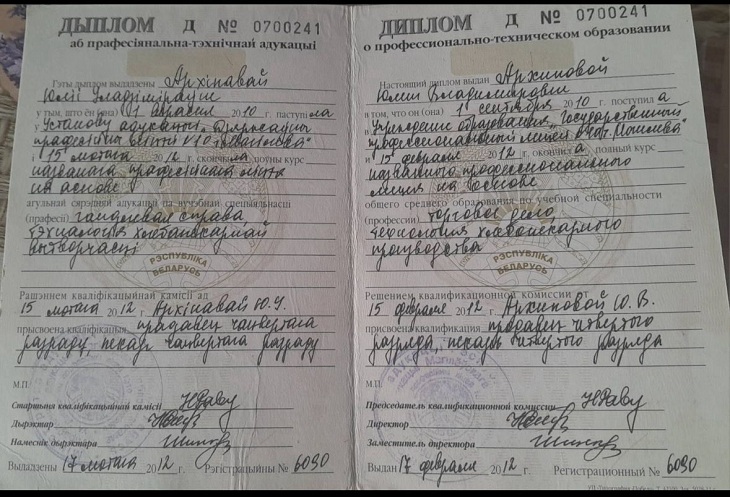 ДЫПЛОМ Д № 0700241
аб прафесіянальна-тэхнічнай адукацыі
Гэты дыплом выдадзены Архіпавай
Юліі Уладзіміраўне
у тым, што ён (она) 01 верасня 2010 г. паступіла
у Установу адукацыі „Дзяржаўны
прафесійны ліцэй №10
і 15 лютага 2012 г. скончыла поўны курс
названага прафесійнага ліцэя
на аснове
агульнай сярэдняй адукацыі па вучэбнай спецыяльнасці
(прафесіі) гандлевая справа
тэхналогія хлебапякарнай
вытворчасці
РЭСПУБЛІКА
БЕЛАРУСЬ
Рашэннем кваліфікацыйнай камісіі ад
15 лютага 2012 г. Архіпавай Ю.У.
прысвоена кваліфікацыя прадавец чацвёртага
разраду, пекар чацвёртага разраду
М.П.
Старшыня кваліфікацыйнай камісіі
Дырэктар
Намеснік дырэктара
Выдадзены 17 лютага 2012 г. Рэгістрацыйны № 6090
ДИПЛОМ Д № 0700241
о профессионально-техническом образовании
Настоящий диплом выдан Архиповой
Юлии Владимировне
в том, что он (она) 01 сентября 2010 г. поступила
в Учреждение образования „Государственный
профессиональный лицей №10
и 15 февраля 2012 г. окончила полный курс
названного профессионального
лицея на основе
общего среднего образования по учебной специальности
(профессии) торговое дело
технология хлебопекарного
производства
РЭСПУБЛІКА
БЕЛАРУСЬ
Решением квалификационной комиссии от
15 февраля 2012 г. Архиповой Ю.В.
присвоена квалификация продавец четвертого
разряда, пекарь четвертого разряда
М.П.
Председатель квалификационной комиссии
Директор
Заместитель директора
Выдан 17 февраля 2012 г. Регистрационный № 6090